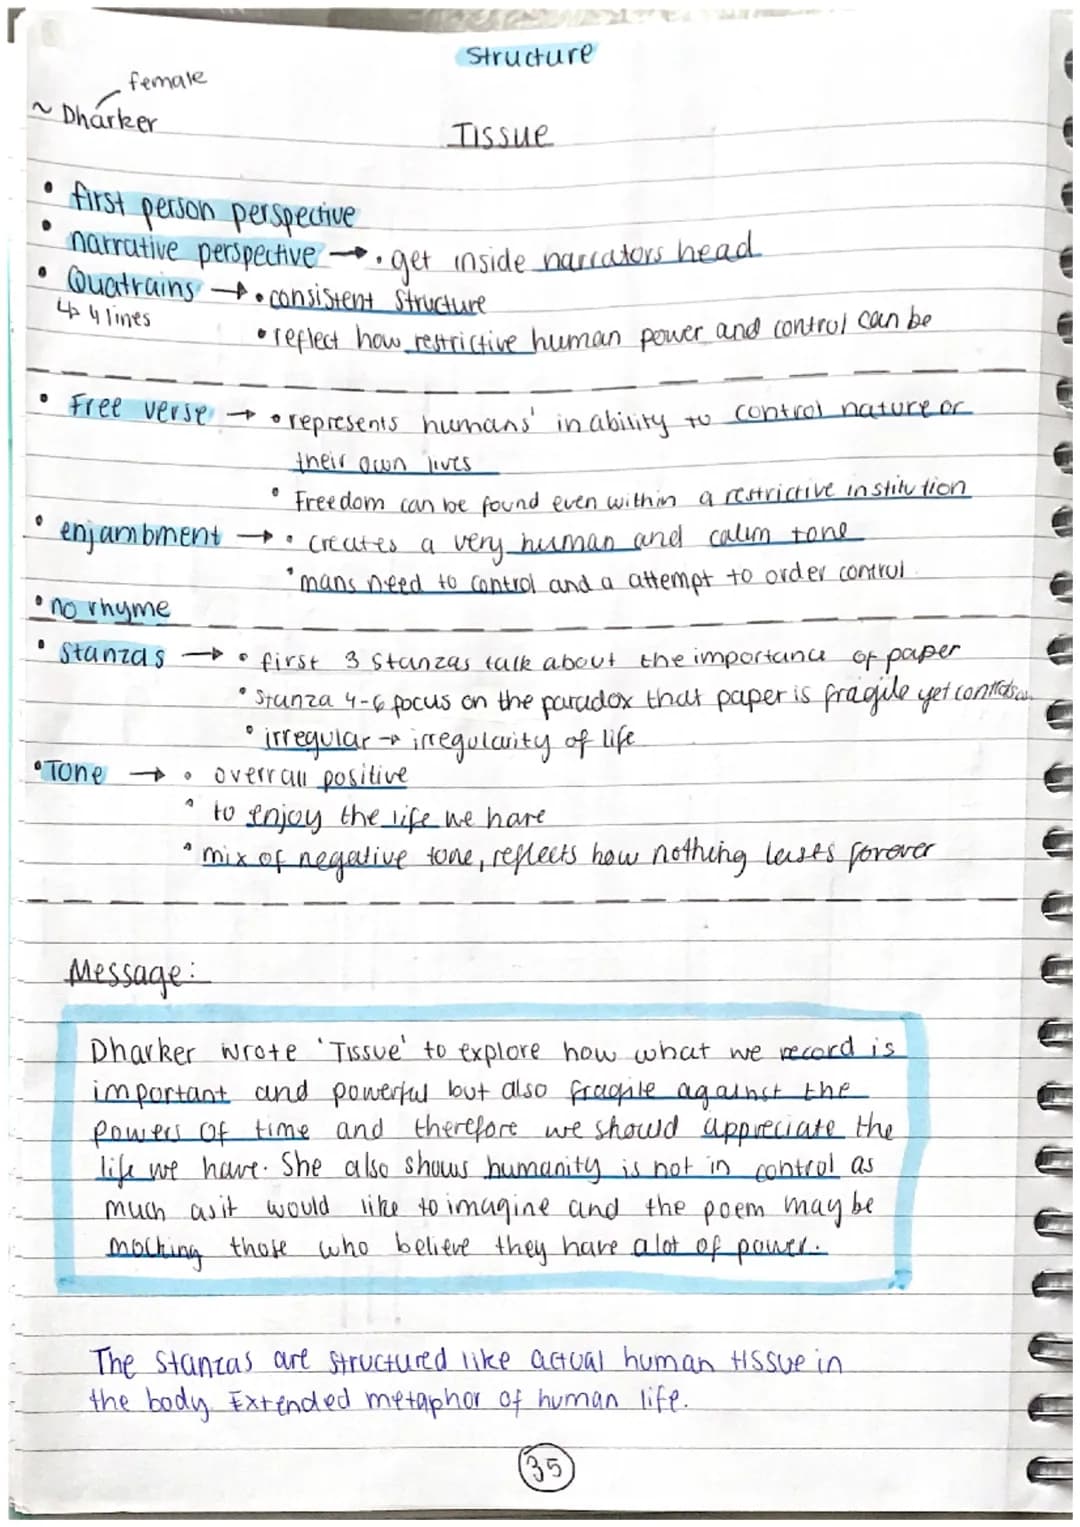 Structure
female
~ Dharker
Tissue
• first person perspective
• narrative perspective → • get inside narrators head
• Quatrains → • consistent structure
↳ 4 lines
• reflect how restrictive human power and control can be
• Free verse → • represents humans' inability to control nature or
their own lives
• Freedom can be found even within a restrictive institution
• enjambment → • creates a very human and calm tone
• mans need to control and a attempt to order control
• no rhyme
• Stanzas → • first 3 stanzas talk about the importance of paper
• Stanza 4-6 focus on the paradox that paper is fragile yet controls
• irregular → irregularity of life
• Tone → • overrall positive
• to enjoy the life we have
• mix of negative tone, reflects how nothing lasts forever
Message:
Dharker wrote 'Tissue' to explore how what we record is
important and powerful but also fragile against the
powers of time and therefore we should appreciate the
life we have. She also shows humanity is not in control as
much as it would like to imagine and the poem may be
mocking those who believe they have a lot of power.
The stanzas are structured like actual human tissue in
the body. Extended metaphor of human life.
35